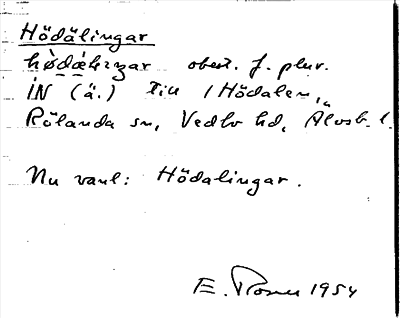 Hödälingar
hödäliŋar obest. f. plur.
IN (ä.) till /Hödalen,
Rölanda sn, Vedbo hd, Älvsb. l.
Nu vanl: Hödalingar.
E. Rosen 1954